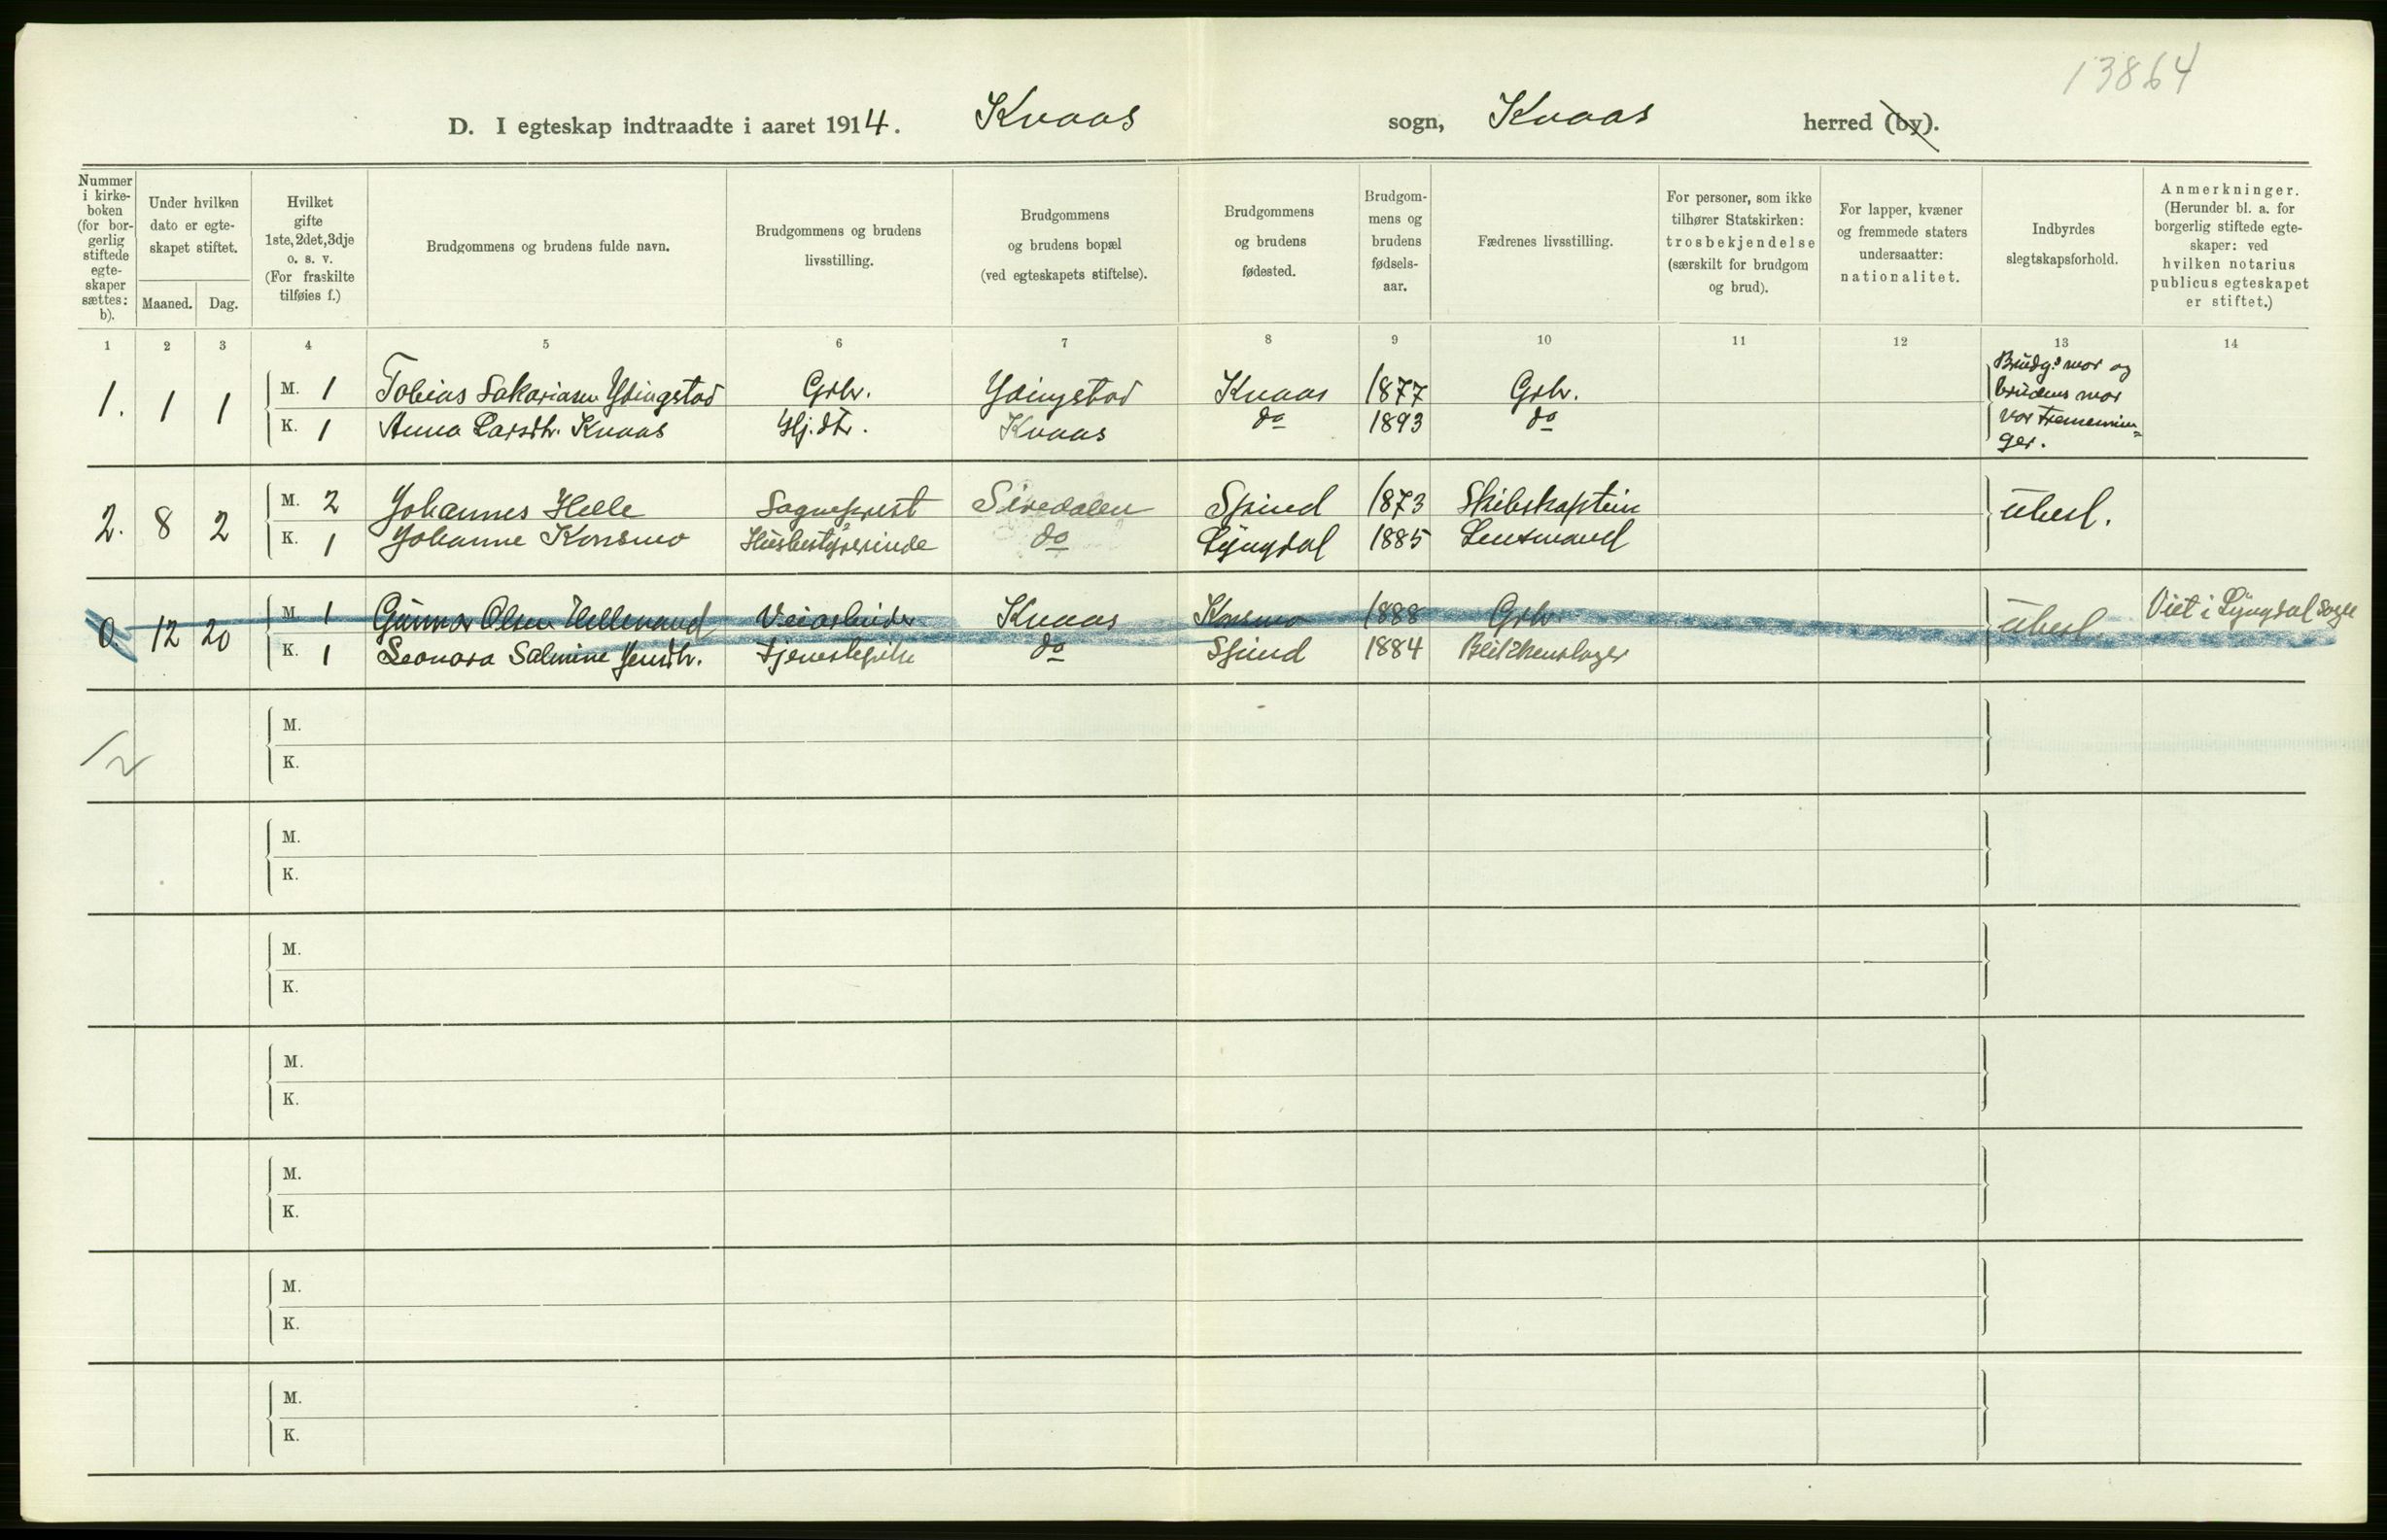 13864
D. I egteskap indtraadte i aaret 1914. Kvaas sogn, Kvaas herred (by).
Nummer i kirke-boken (for bor-gerlig stiftede egte-skaper sættes: b).
Under hvilken dato er egte-skapet stiftet.
Maaned. Dag.
Hvilket gifte 1ste, 2det, 3dje o. s. v. (For fraskilte tilføies f.)
Brudgommens og brudens fulde navn.
Brudgommens og brudens livsstilling.
Brudgommens og brudens bopæl (ved egteskapets stiftelse).
Brudgommens og brudens fødested.
Brudgom-mens og brudens fødsels-aar.
Fædrenes livsstilling.
For personer, som ikke tilhører Statskirken: trosbekjendelse (særskilt for brudgom og brud).
For lapper, kvæner og fremmede staters undersaatter: nationalitet.
Indbyrdes slegtskapsforhold.
Anmerkninger. (Herunder bl. a. for borgerlig stiftede egte-skaper: ved hvilken notarius publicus egteskapet er stiftet.)
1 2 3 4 5 6 7 8 9 10 11 12 13 14
1. 1 1 M. 1 Tobias Sakariasen Ydingstad Grbr. Ydingstad Kvaas 1877 Grbr. Brudg.s mor og
brudens mor
K. 1 Anna Larsdtr. Kvaas Hj. dtr. Kvaas do 1893 do var tremennin=
ger.
2. 8 2 M. 2 Johannes Helle Sogneprest Siredalen Spind 1873 Skibskaptein ubesl.
K. 1 Johanne Konsmo Husbestyrerinde do Lyngdal 1885 Lensmand
0. 12 20 M. 1 Gunnar Olsen Hellemand Veiarbeider Kvaas Konsmo 1888 Grbr. ubesl. Viet i Lyngdal sogn
K. 1 Leonora Salmine Jensdtr. Tjenestepike do Spind 1884 Blikkenslager
M.
1/2
K.
M.
K.
M.
K.
M.
K.
M.
K.
M.
K.
M.
K.